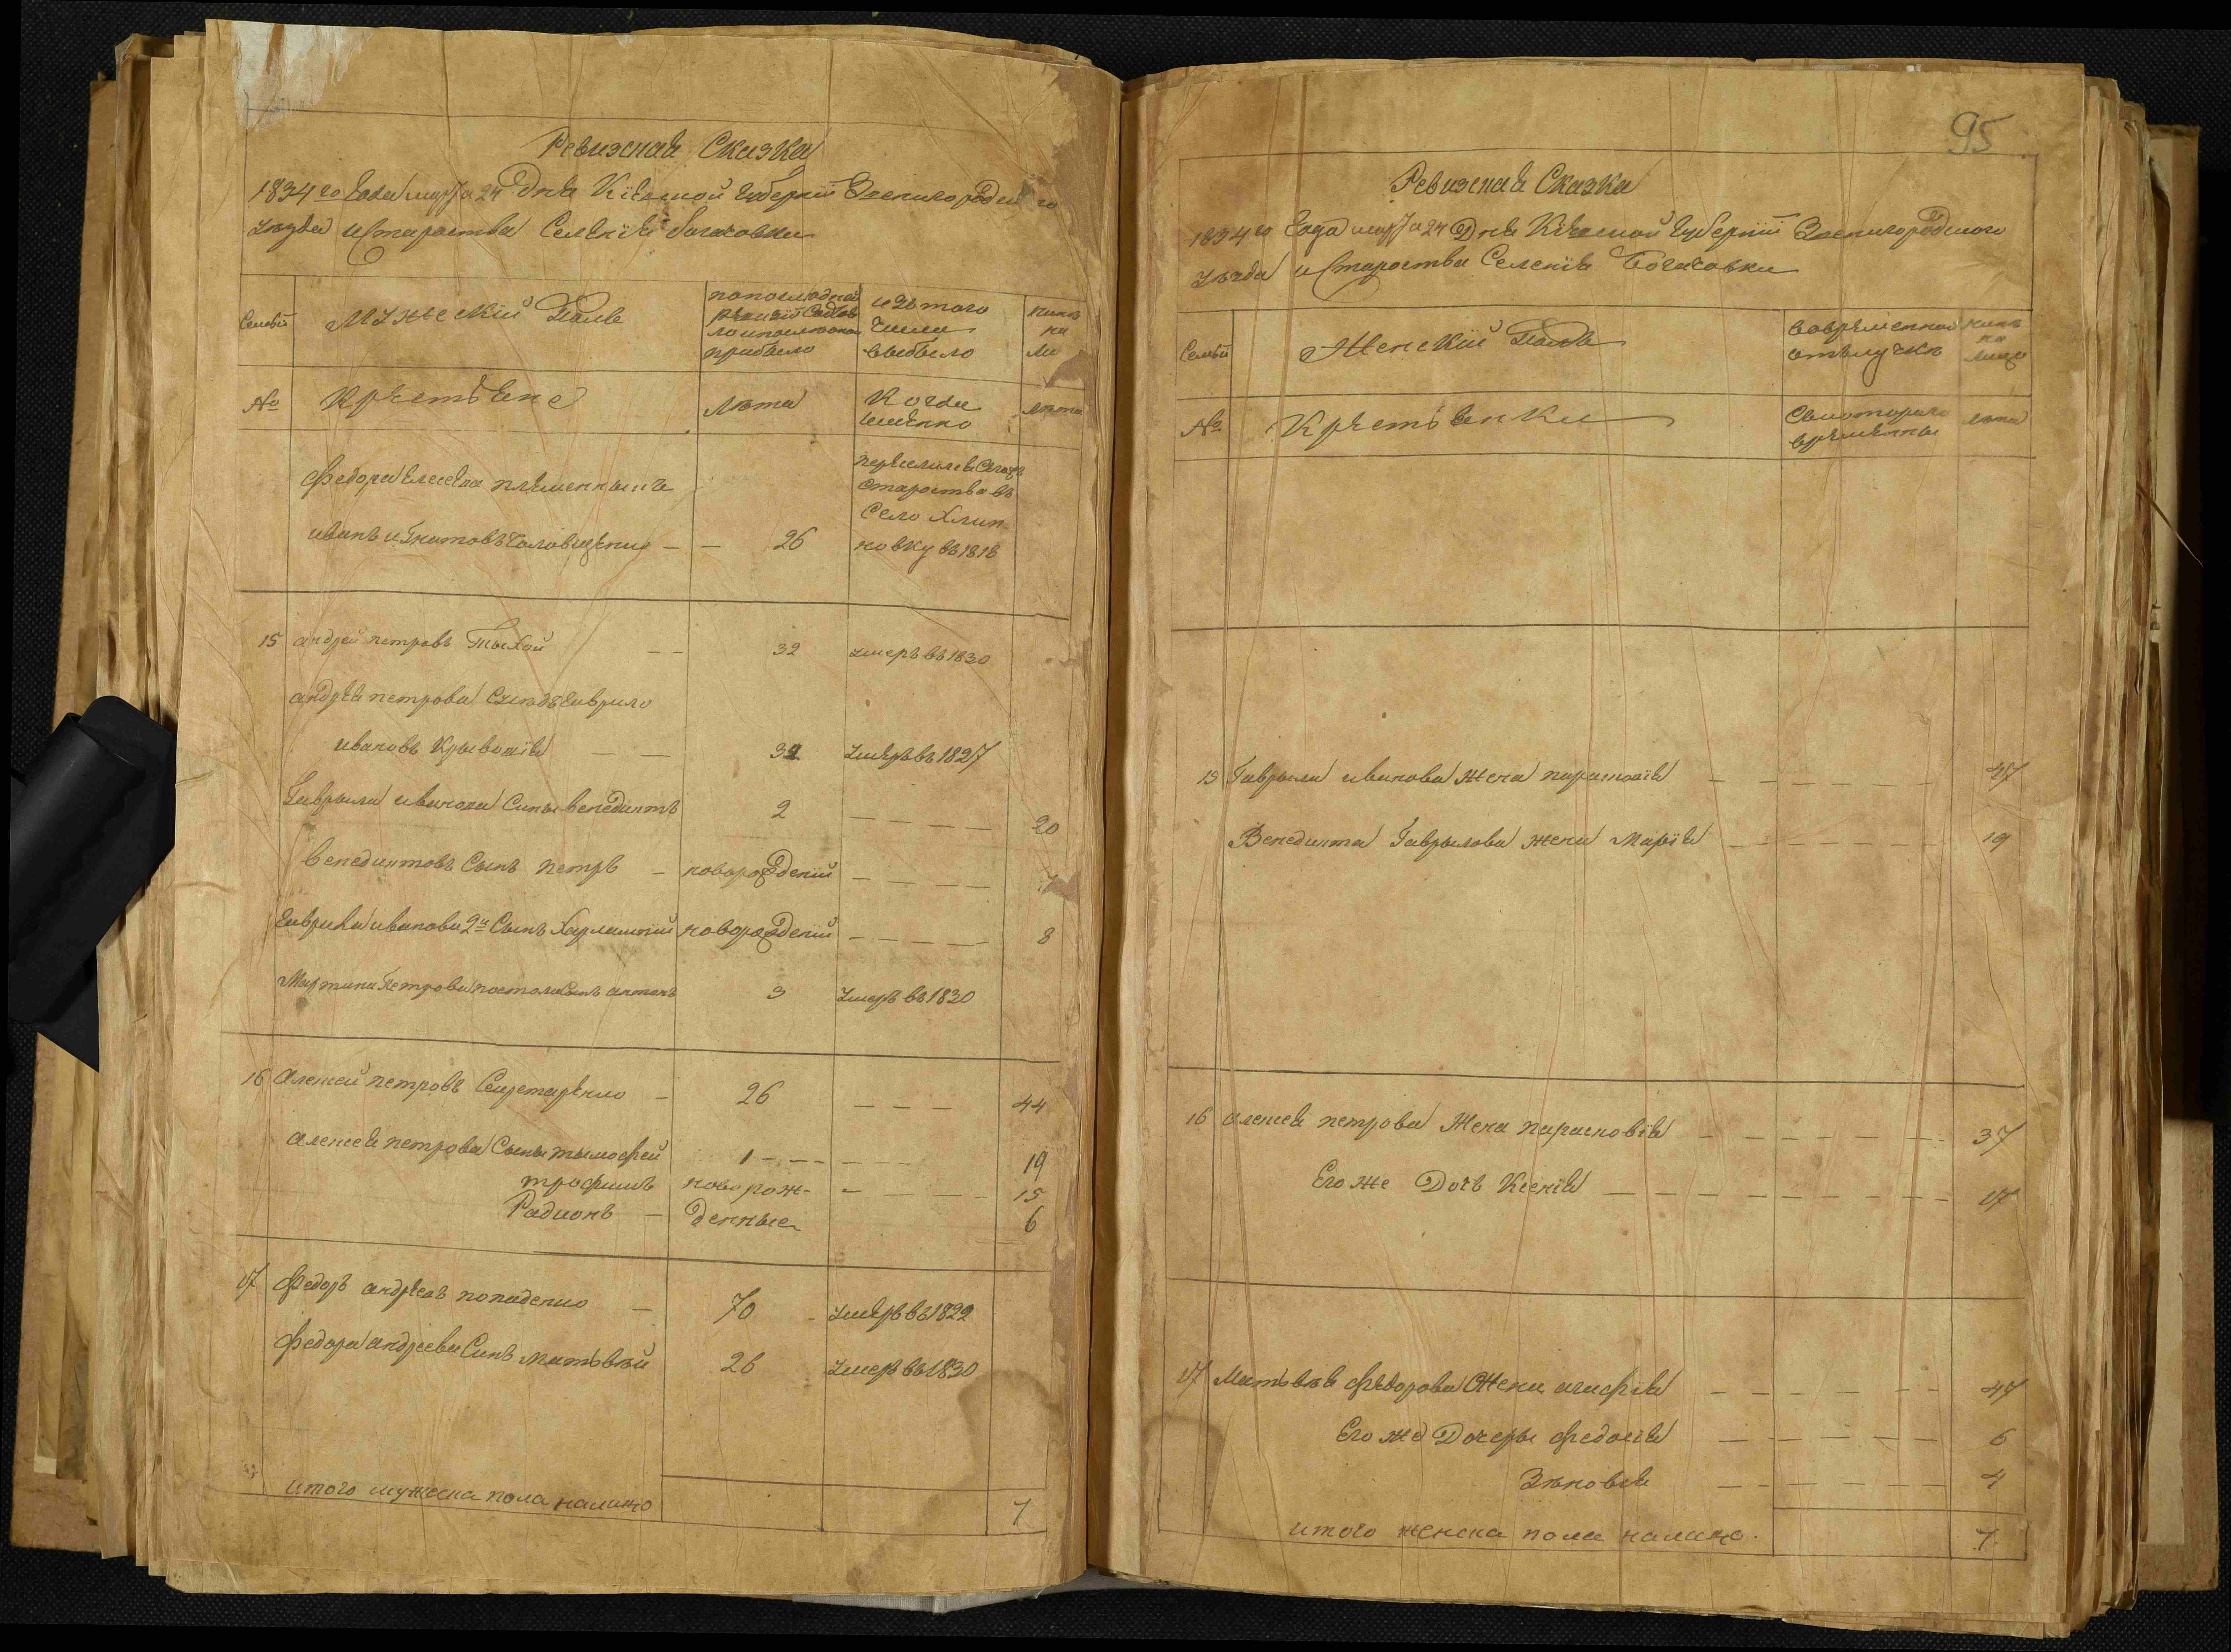 Ревизская Сказка
1834 го Года марта 24 Дня Кіевской Губерніи Звенигородского
уезда и Староства Селенія Богачовки
Семьи
Мужескій Полъ
по последней ревизіи состояло и после оной прибыло
изъ того числа выбыло
ныне на ли
№
Крестьяне
Лета
Когда именно
лета
Федора Елесева племенныкъ
иванъ игнатовъ Головченко — — 26
переселился с сего староства въ Село Хлипновку въ 1818
15 андрей петровъ Тыхой — — 32 умеръ въ 1830
андрея петрова Гаврило
ивановъ Крывошія — — 34 умеръ въ 1827
Гаврыла иванова Сыны венедиктъ 2 — — — — 20
венедиктовъ Сынъ петръ — новорожденій — — — — 1
Гаврила иванова 2й Сынъ Харлампій новорожденій — — — — 8
Мартина Петрова постола Сынъ антонъ 3 умеръ въ 1830
16 Алексей петровъ Секретаренко — 26 — — — 44
алексея петрова Сыны тымофей 1 — — — — — 19
трофимъ новорож- — — — — 15
Радионъ — денные 6
17 Федоръ андреевъ попаденко — 70 - умеръ въ 1822
Федора андреева Синъ матьвей 26 умеръ въ 1830
итого мужеска пола налицо 7
95
Ревизская Сказка
1834 го Года марта 24 Дня Кіевской Губерніи Звенигородского
уезда и Староства Селенія Богачовки
Семьи
Женскій Полъ
во временной отълучке
ныне на лицо
№
Крестьянки
Съ которого времены
лета
15 Гаврыла иванова Жена парасковія — — — — — — 47
Венедикта Гаврылова жена Марія — — — — — — 19
16 алексея петрова Жена парасковія — — — — — — 37
Его же Дочь Ксенія — — — — — — — — 17
17 Матьвея федорова Жена агафія — — — — — — 47
Его же Дочеры федосія — — — — — — 6
Зеновія — — — — — — 4
итого женска пола налицо. 7